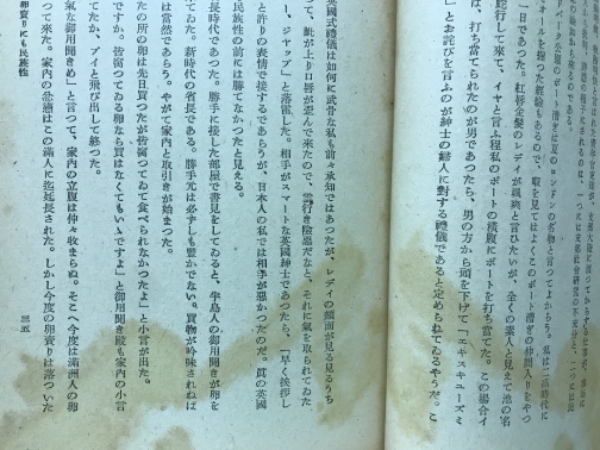 の缺如から來るのである。
ドパーク公園のボート漕ぎは夏のロンドンの名物と言つてよからう。私は二高時代に
オールを握つた經驗もあるので、暇を見てはよくこのボート漕ぎの仲間入りをやつ
一日であつた。紅唇金髮のレディが颯爽と言ひたいが、全くの素人と見えて池の名
蛇行して來て、イヤと言ふ程私のボートの横腹にボートを打ち當てた。この場合イ
は、打ち當てられたのが男であつたら、男の方から頭を下げて「エキスキユーズミ
」とお詫びを言ふのが紳士の婦人に對する禮儀であると定められてゐるやうだ。こ
英國式禮儀は如何に武骨な私も前々承知ではあつたが、レディの顏面が見る見るうち
つて、眦が上り口唇が歪んで來たので、雲行き險惡だなと、それに氣を取られてゐた
ー、ジャップ」と落雷した。相手がスマートな英國紳士であつたら、「早く挨拶し
と許りの表情で接するであらうが、日本人の私では相手が惡かつたのだ。眞の英國
民族性の前には勝てなかつたと見える。
長時代であつた。勝手に接した部屋で書見をしてゐると、半島人の御用聞きが卵を
てゐた。新時代の省長である。勝手元は必ずしも豐かでない。買物が吟味されねば
は當然であらう。やがて家內と取引きが始まつた。
たの所の卵は先日買つたが皆腐つてゐて食べられなかつたよ」と小言が出た。
ですか。皆腐つてゐる卵なら買はなくてもいゝですよ」と御用聞き殿も家內の小言
てたか、プイと飛び出して終つた。
氣な御用聞きめ」と言つて、家內の立腹は仲々收まらぬ。そこへ今度は滿洲人の卵
つて來た。家內の忿懣はこの滿人に迄延長された。しかし今度の卵賣りは落ついた
卵賣りにも民族性
三五